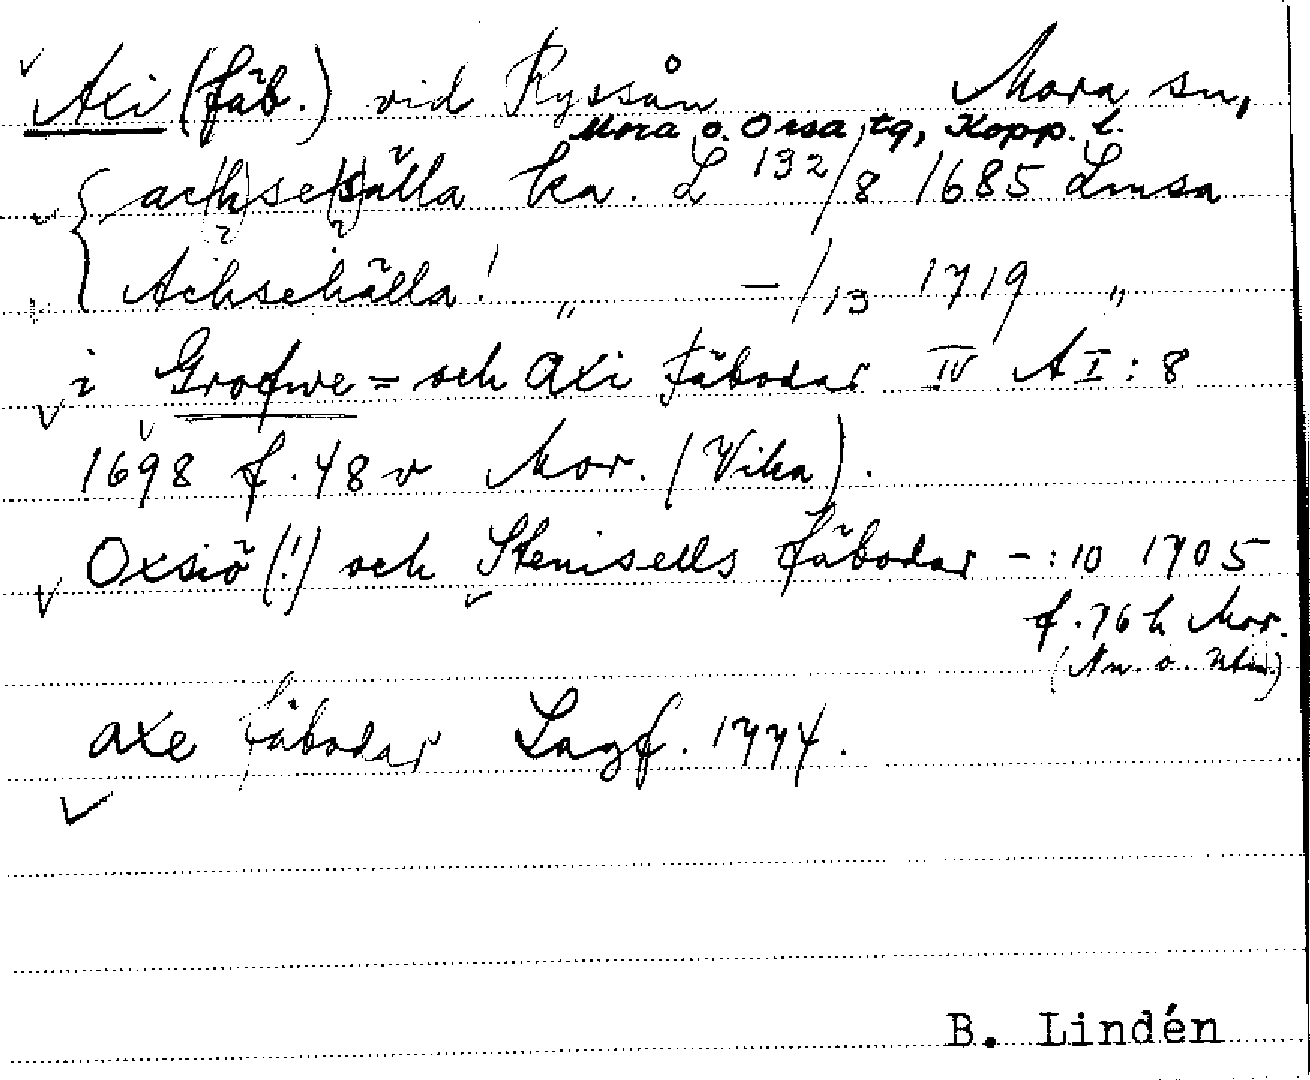 Axi (fäb.) vid Ryssån Mora sn,
Mora o. Orsa tg, Kopp. l.
ac(h)se(k)älla ka. L 132/8 1685 Lmsa
Achsehälla! „ -/13 1719 „
i Grofwe= och Axi fäbodar IV A I:8
1698 f. 48 v Mor. (Vika).
Oxsiö (!) och Stenisells fäbodar -:10 1705
f. 76 h Mor.
axe fäbodar Lagf. 1774.
B. Lindén